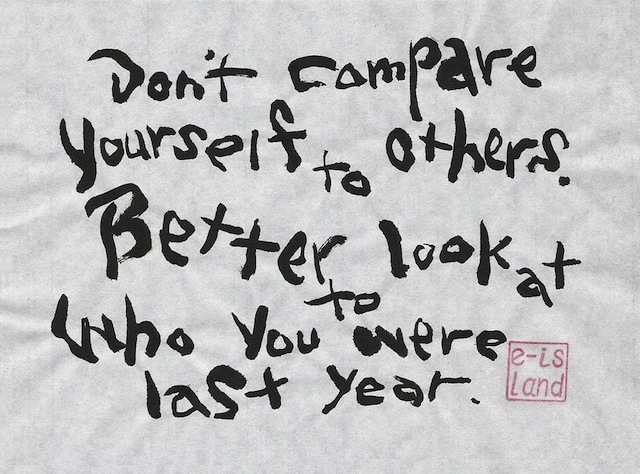 Don't compare
yourself to others.
Better look at
to
who you were
last year.
e-is
land